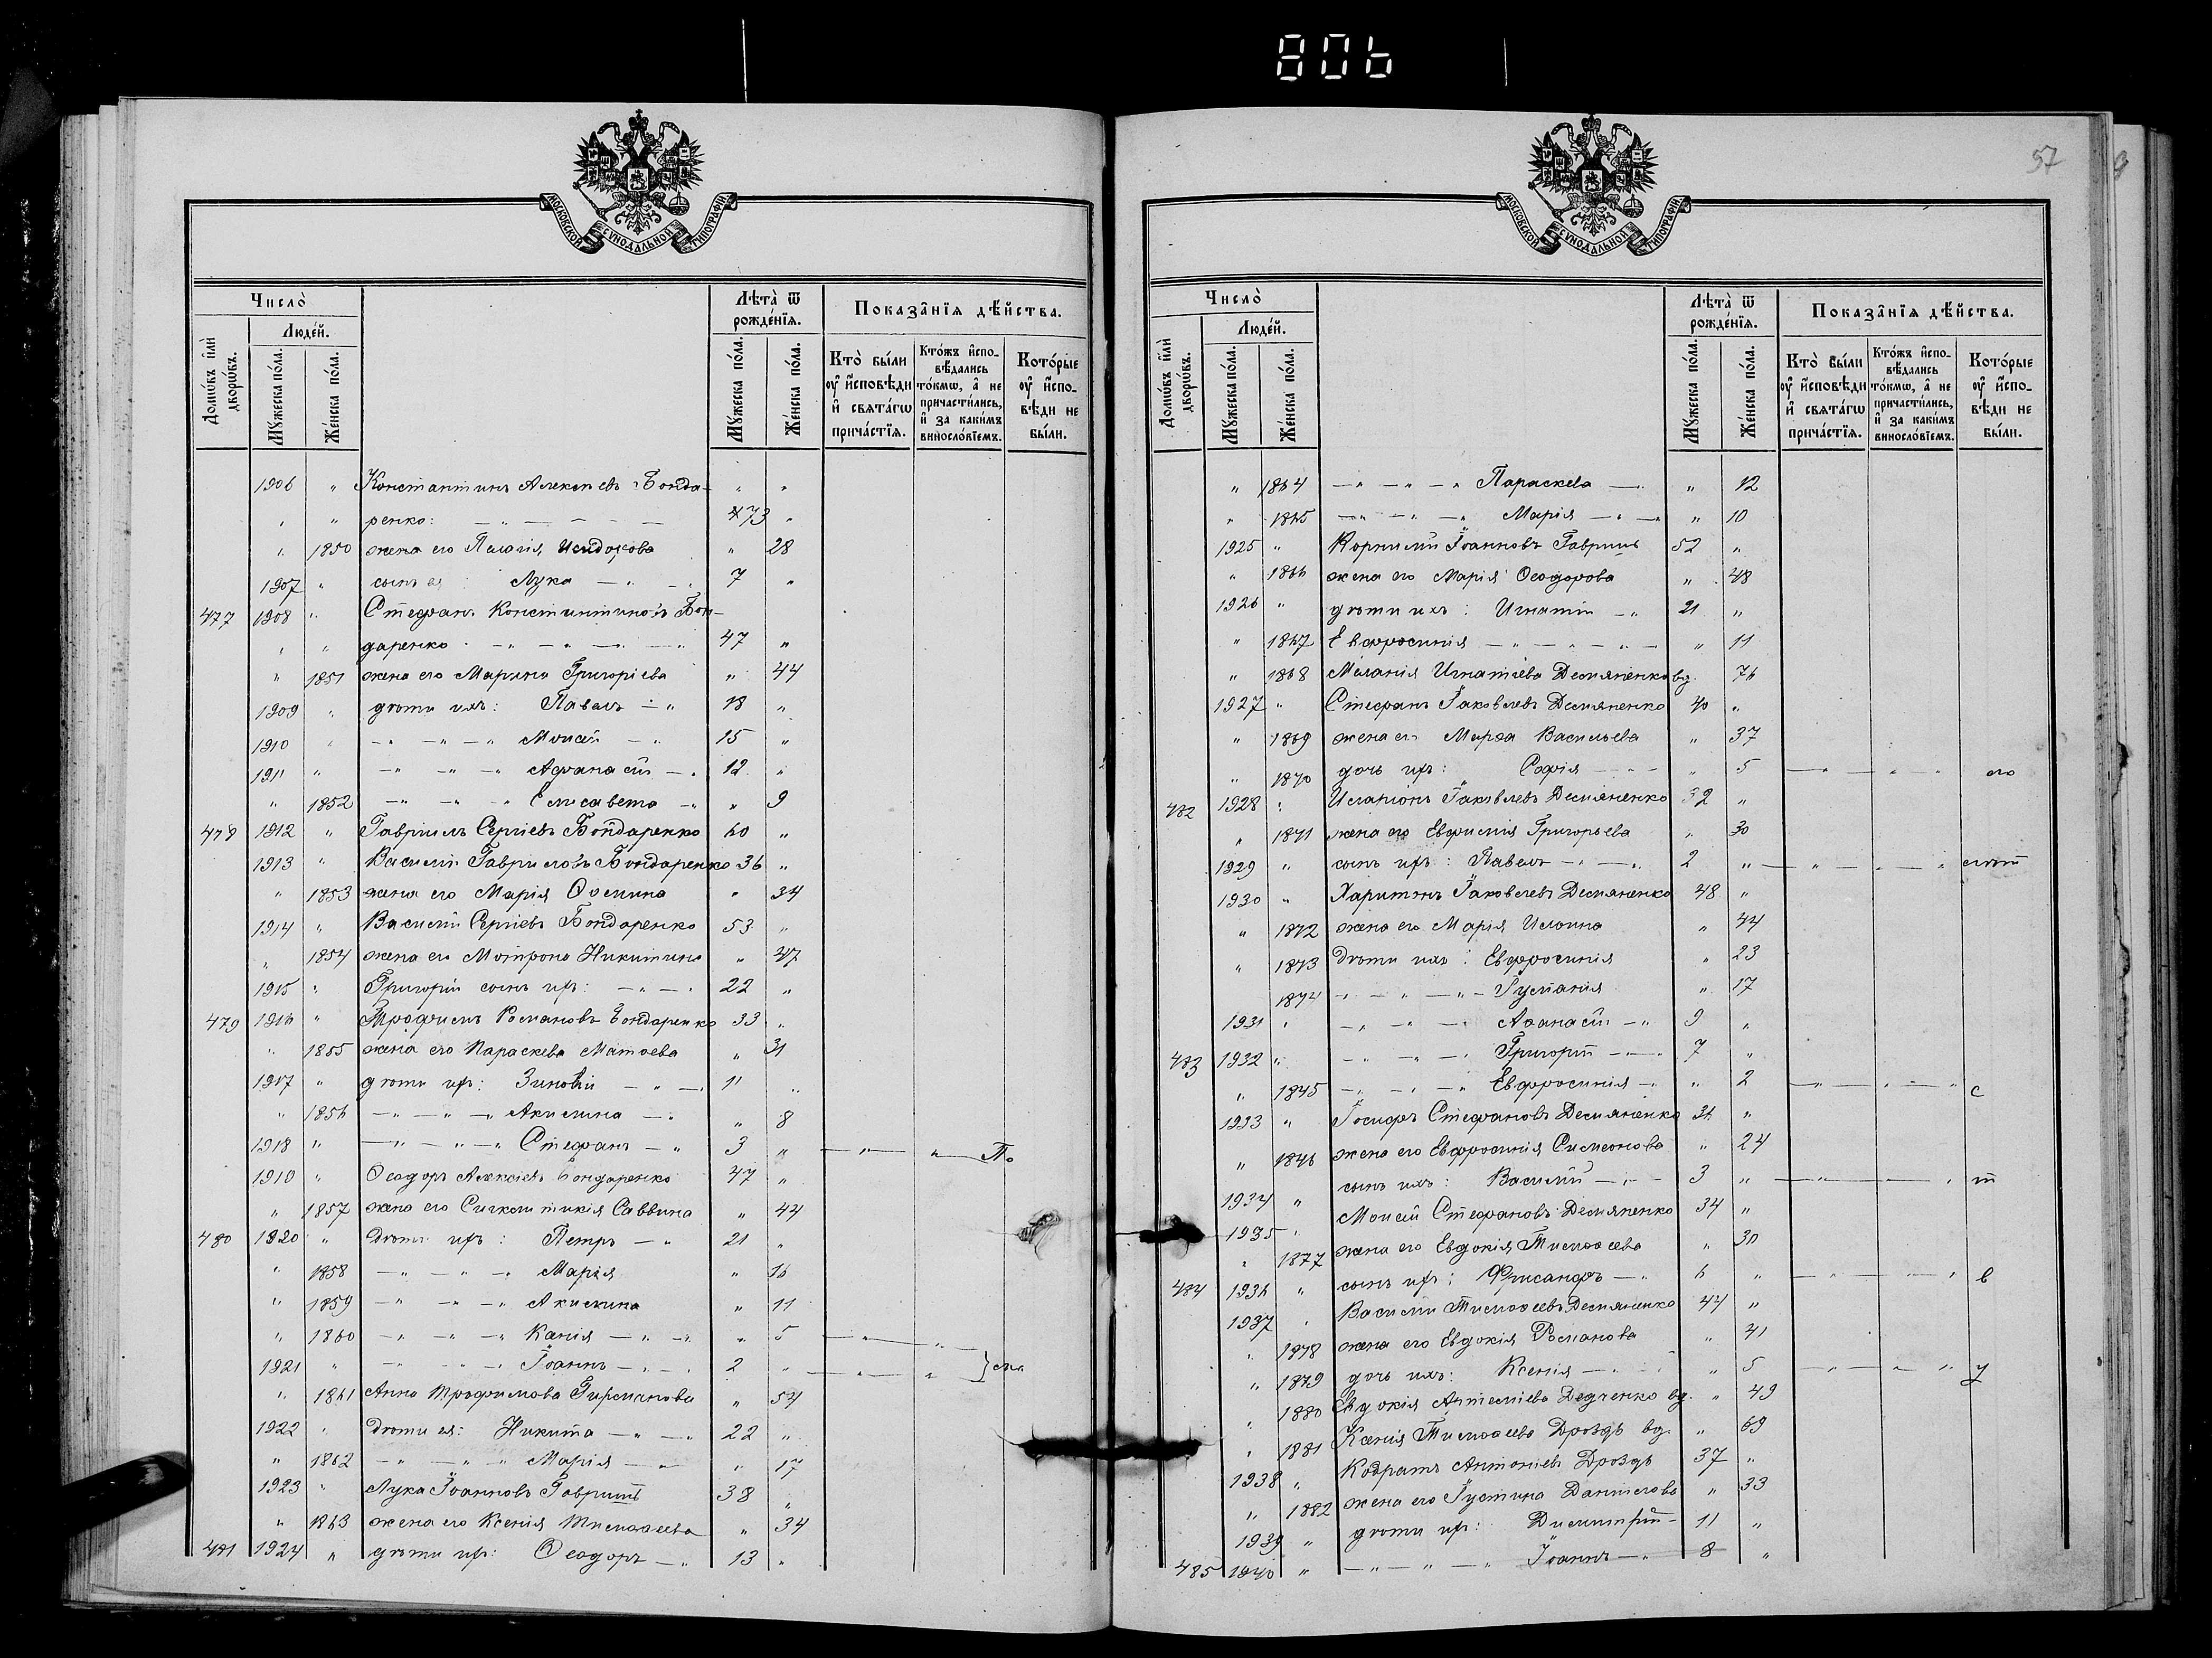 806
57
МОСКОВСКОЙ СѴНОДАЛЬНОЙ ТИПОГРАФІИ
Число̀
Люде́й.
Домѡ́въ и҆лѝ дворѡ́въ.
Мꙋ́жеска по́ла.
Же́нска по́ла.
Лѣта̀ ѿ рожде́нїѧ.
Мꙋ́жеска по́ла.
Же́нска по́ла.
Показа̑нїѧ дѣ́йства.
Кто̀ бы́ли оу҆ и҆сповѣ́ди и҆ свѧта́гѡ прича́стїѧ.
Кто́жъ и҆спо-вѣ́дались то́кмѡ, а҆ не причасти́лись, и҆ за каки́мъ виносло́вїемъ.
Кото́рые оу҆ и҆спо-вѣ́ди не бы́ли.
1906 " Константинъ Алексѣевъ Бонда- " "
" " ренко: — " — — — 73 "
" 1850 жена его Пелагія Исидорова " 28
1907 " сынъ ея Лука — " — " 7 "
477 1908 " Стефанъ Константиновъ Бон-
" " даренко — " — " — " — " 47 "
" 1851 жена его Марина Григоріева " 44
1909 " дѣти ихъ: Павелъ — " 18 "
1910 " — " — " — " Моисей — " 15 "
1911 " — " — " — " Афанасій — " 12 "
" 1852 — " — " — " Елисавета — " " 9
478 1912 " Гавріилъ Сергіевъ Бондаренко 60 "
1913 " Василій Гавриловъ Бондаренко 36 "
" 1853 жена его Марія Ѳомина " 34
1914 " Василій Сергіевъ Бондаренко 53 "
" 1854 жена его Мотрона Никитина " 47
1915 " Григорій сынъ ихъ: — " — " 22 "
479 1916 " Трофимъ Романовъ Бондаренко 33 "
" 1855 жена его Параскева Матѳева " 31
1917 " дѣти ихъ: Зиновій — " — " 11 "
" 1856 — " — " — " Акилина — " " 8
1918 " — " — " — " Стефанъ — " 3 " — " — " — По
1910 " Ѳеодоръ Алексіевъ Бондаренко 47 "
" 1857 жена его Сигклитикія Саввина " 44
480 1920 " Дѣти ихъ: Петръ — " 21 "
" 1858 — " — " — " Марія " 16
" 1859 — " — " — " Акилина " 11
" 1860 — " — " — " Ксенія — " — " " 5 — " — "
1921 " — " — " — " Іоаннъ — " — " 2 " — " — "
" 1861 Анна Трофимова " 54
1922 " Дѣти ея: Никита — " — " 22 "
" 1862 — " — " — " Марія — " " 17
1923 " Лука Іоанновъ Гавришъ 38 "
" 1863 жена его Ксенія Тимоѳеева " 34
481 1924 " дѣти ихъ: Ѳеодоръ — " 13 "
МОСКОВСКОЙ СѴНОДАЛЬНОЙ ТИПОГРАФІИ
Число̀
Люде́й.
Домѡ́въ и҆лѝ дворѡ́въ.
Мꙋ́жеска по́ла.
Же́нска по́ла.
Лѣта̀ ѿ рожде́нїѧ.
Мꙋ́жеска по́ла.
Же́нска по́ла.
Показа̑нїѧ дѣ́йства.
Кто̀ бы́ли оу҆ и҆сповѣ́ди и҆ свѧта́гѡ прича́стїѧ.
Кто́жъ и҆спо-вѣ́дались то́кмѡ, а҆ не причасти́лись, и҆ за каки́мъ виносло́вїемъ.
Кото́рые оу҆ и҆спо-вѣ́ди не бы́ли.
" 1864 — " — " — " Параскева — " " 12
" 1865 — " — " — " Марія — " — " " 10
1925 " Корнилій Іоанновъ Гавришъ 52 "
" 1866 жена его Марія Ѳеодорова " 48
1926 " дѣти ихъ: Игнатій — " 21 "
" 1867 Евфросинія — " — " — " — " 11
" 1868 Меланія Игнатіева Демяненко вд. 76
1927 " Стефанъ Іаковлевъ Демяненко 40 "
" 1869 жена его Марѳа Васильева " 37
" 1870 дочь ихъ: Софія — " — " " 5 — " — " — "
482 1928 " Иларіонъ Іаковлевъ Демяненко 32 "
" 1871 жена его Евфимія Григорьева " 30
1929 " сынъ ихъ: Павелъ — " — " 2 " — " — " — " лѣт
1930 " Харитонъ Іаковлевъ Демяненко 48 "
" 1872 жена его Марія Илоина " 44
" 1873 Дѣти ихъ: Евфросинія " 23
1874 — " — " — " — Іуліанія " 17
1931 " — " — " — " Аѳанасій — " 9 "
483 1932 " — " — " — " Григорій — " — " 7 "
" 1845 — " — " — " Евфросинія — " " 2 — " — " — " с
1933 " Іосифъ Стефановъ Демяненко "
" 1846 жена его Евфросинія Симеонова " 24
1934 " сынъ ихъ: Василій — " — 3 " — " — " т
1935 " Моисей Стефановъ Демяненко 34 "
" 1877 жена его Евдокія Тимоѳеева " 30
484 1936 " сынъ ихъ: — " 6 " — " — " — " в
1937 " Василій Тимоѳеевъ Демяненко 44 "
" 1878 жена его Евдокія Романова " 41
" 1879 дочь ихъ: Ксенія — " " 5 — " — " — " у
" 1880 Евдокія Артеміева Дедченко вд. " 49
" 1881 Ксенія Тимоѳеева Дроздъ вд. " 69
1938 " Кодратъ Антоніевъ Дроздъ 37 "
" 1882 жена его Іустина Даніилова " 33
1939 " дѣти ихъ: Димитрій — 11 "
485 1940 " — " — " — " Іоаннъ — " 8 "